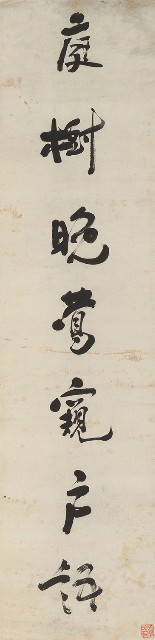 庭樹晚鶯窺戶語